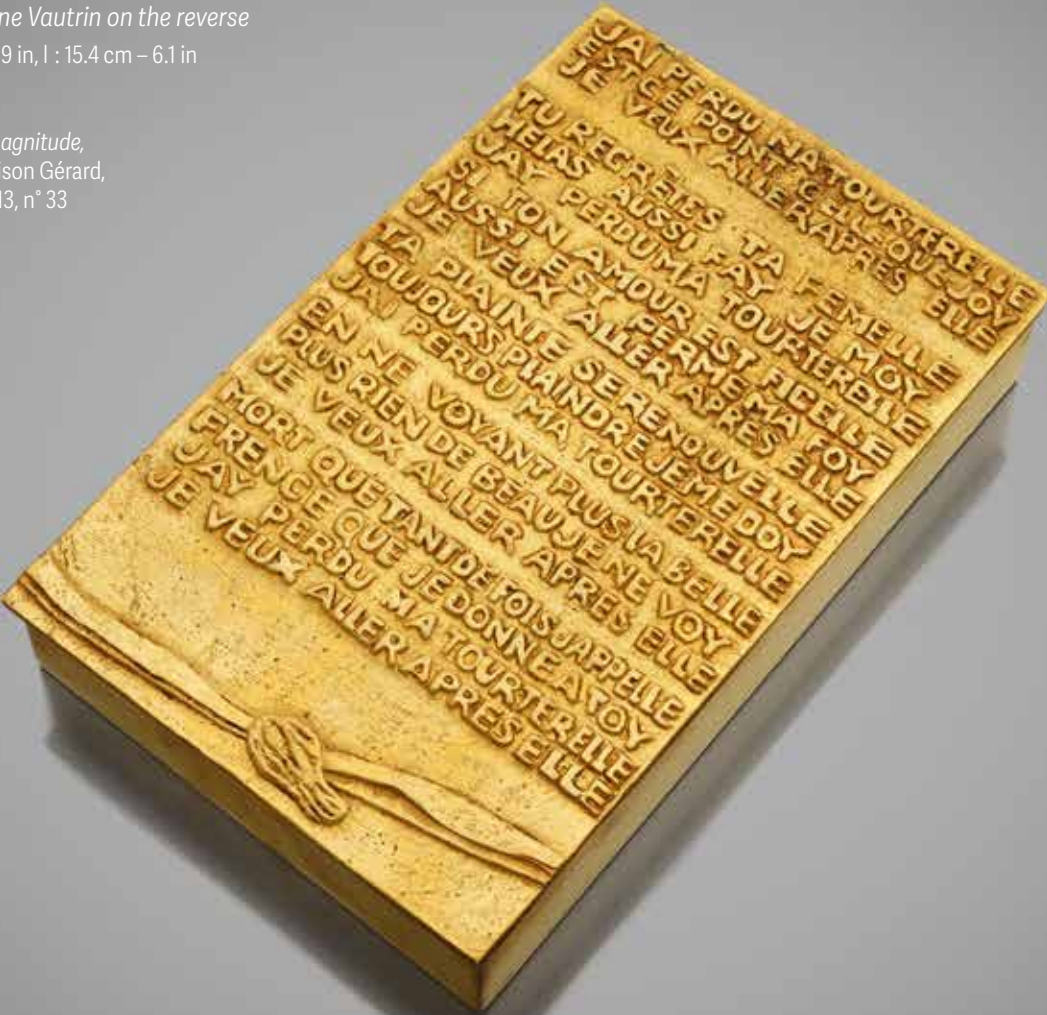 ne Vautrin on the reverse
9 in, l : 15.4 cm – 6.1 in
agnitude,
ison Gérard,
13, n° 33
JAI PERDU NA TOURTERELLE
EST CE POINT CELLE QUE JOY
JE VEUX ALLER APRES ELLE
TU REGRETES TA FEMELLE
HELAS AUSSI FAY JE MOY
JAY PERDU MA TOURTERELLE
SI TON AMOUR EST FIDELLE
AUSSI EST FERME MA FOY
JE VEUX ALLER APRES ELLE
TA PLAINTE SE RENOUVELLE
TOUJOURS PLAINDRE JE ME DOY
JAI PERDU MA TOURTERELLE
EN NE VOYANT PLUS LA BELLE
PLUS RIEN DE BEAU JE NE VOY
JE VEUX ALLER APRES ELLE
MORT QUE TANT DE FOIS JAPPELLE
FRENCE QUE JE DONNE A TOY
JAY PERDU MA TOURTERELLE
JE VEUX ALLER APRES ELLE